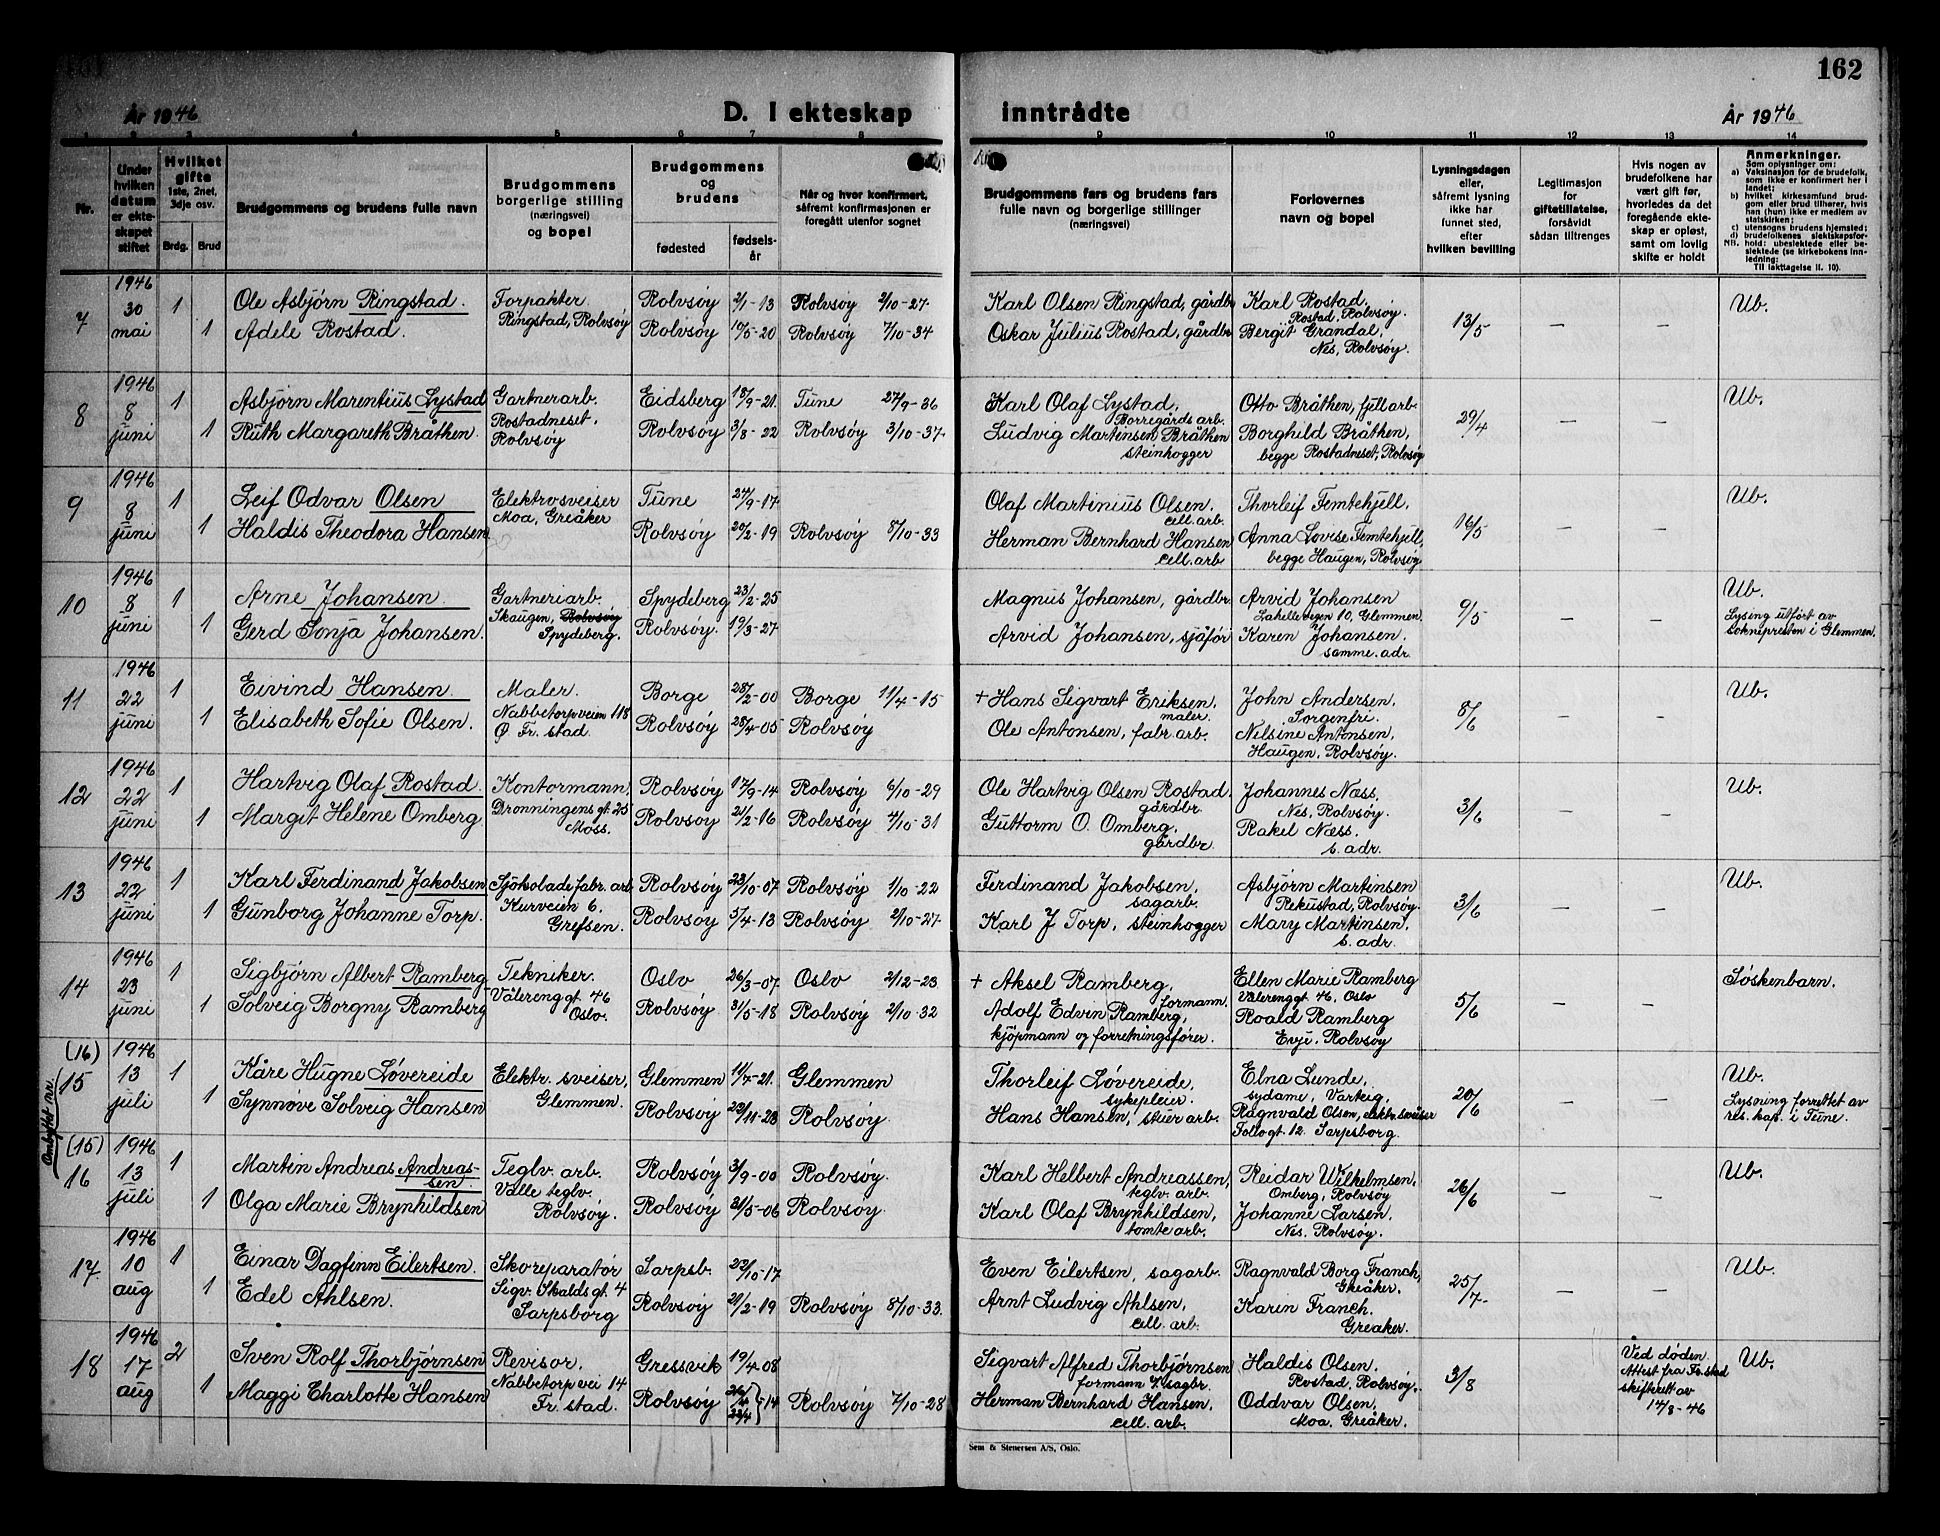 162
År 1946
D. I ekteskap inntrådte
År 1946
1 2 3 4 5 6 7 8 9 10 11 12 13 14
Nr.
Under hvilken datum er ekteskapet stiftet
Hvilket gifte 1ste, 2net, 3dje osv.
Brdg. Brud
Brudgommens og brudens fulle navn
Brudgommens borgerlige stilling (næringsvei) og bopel
Brudgommens og brudens
fødested
fødselsår
Når og hvor konfirmert, såfremt konfirmasjonen er foregått utenfor sognet
Brudgommens fars og brudens fars fulle navn og borgerlige stillinger (næringsvei)
Forlovernes navn og bopel
Lysningsdagen eller, såfremt lysning ikke har funnet sted, efter hvilken bevilling
Legitimasjon for giftetillatelse, forsåvidt sådan tiltrenges
Hvis nogen av brudefolkene har vært gift før, hvorledes da det foregående ekteskap er opløst, samt om lovlig skifte er holdt
Anmerkninger.
Som oplysninger om:
a) Vaksinasjon for de brudefolk, som ikke er konfirmert her i landet;
b) hvilket kirkesamfund brudgom eller brud tilhører, hvis han (hun) ikke er medlem av statskirken;
c) utensogns brudens hjemsted;
d) brudefolkenes slektskapsforhold: ubeslektede eller beslektede (se kirkebokens innledning;
NB.
Til iakttagelse II. 10).
7 1946 30 mai 1 Ole Asbjørn Ringstad. Forpakter. Ringstad, Rolvsøy Rolvsøy 2/1-13 Rolvsøy 2/10-27. Karl Olsen Ringstad, gårdbr Karl Rostad. Rostad, Rolvsøy. 13/5 — — Ub.
1 Adele Rostad. Rolvsøy 10/5-20 Rolvsøy 7/10-34 Oskar Julius Rostad, gårdbr Bergit Grandal, Nes, Rolvsøy.
8 1946 8 juni 1 Asbjørn Marentius Lystad Gartnerarb. Rostadneset. Rolvsøy Eidsberg 18/9-21. Tune 27/9-36 Karl Olaf Lystad, Borregårds arb. Otto Bråthen, fjellarb. 29/4 — — Ub.
1 Ruth Margareth Bråthen. Rolvsøy 3/8-22 Rolvsøy 3/10-37. Ludvig Martinsen Bråthen steinhogger Borghild Bråthen, begge Rostadneset, Rolvsøy
9 1946 8 juni 1 Leif Odvar Olsen Elektrosveiser Moa, Greåker Tune 24/9-17 Olaf Martinius Olsen. cell. arb. Thorleif Femtehjell. 16/5 — — Ub.
1 Haldis Theodora Hansen Rolvsøy 20/2-19 Rolvsøy 8/10-33 Herman Bernhard Hansen cell. arb Anna Lovise Femtehjell, begge Haugen, Rolvsøy
10 1946 8 juni 1 Arne Johansen Gartneriarb. Skaugen, Rolvsøy Spydeberg. Spydeberg 23/2-25 Magnus Johansen, gårdbr. Arvid Johansen Lahellevegen 10, Glemmen. 9/5 — — Ub. Lysing utført av soknepresten i Glemmen.
1 Gerd Sonja Johansen. Rolvsøy. 19/3-27 Arvid Johansen, sjåfør Karen Johansen. samme. adr.
11 1946 22 juni 1 Eivind Hansen. Maler. Nabbetorpveien 118 Ø Fr. stad. Borge 28/2-00 Borge 11/4-15 + Hans Sigvart Eriksen, maler. John Andersen, Sorgenfri. 8/6 — — Ub.
1 Elisabeth Sofie Olsen. Rolvsøy 28/4-05 Rolvsøy Ole Antonsen, fabr. arb. Nelsine Antonsen, Haugen, Rolvsøy.
12 1946 22 juni 1 Hartvig Olaf Rostad. Kontormann, Dronningens gt. 25 Moss. Rolvsøy 17/9-14 Rolvsøy 6/10-29 Ole Hartvig Olsen Rostad gårdbr. Johannes Næss, Nes, Rolvsøy. 3/6 — — Ub.
1 Margit Helene Omberg Rolvsøy 21/2-16 Rolvsøy 4/10-31 Guttorm O. Omberg, gårdbr. Rakel Næss. s. adr.
13 1946 22 juni 1 Karl Ferdinand Jakobsen Sjokoladefabr. arb Kurveien 6. Grefsen. Rolvsøy 23/10-07 Rolvsøy 1/10-22 Ferdinand Jakobsen, sagarb. Asbjørn Martinsen Rekustad, Rolvsøy. 3/6 — — Ub.
1 Gunborg Johanne Torp. Rolvsøy 5/4-13 Rolvsøy 2/10-27. Karl J Torp, steinhogger Mary Martinsen, s. adr.
14 1946 23 juni 1 Sigbjørn Albert Ramberg Tekniker. Vålereng gt. 46 Oslo. Oslo 26/3-07. Oslo 2/12-23 + Aksel Ramberg, formann. Ellen Marie Ramberg Vålerenggt. 46, Oslo 5/6 — — Søskenbarn.
1 Solveig Borgny Ramberg Rolvsøy 31/5-18 Rolvsøy 2/10-32 Adolf Edvin Ramberg, kjøpmann og forretningsfører. Roald Ramberg Evje. Rolvsøy
Ombyttet nr.
(16) 15 1946 13 juli 1 Kåre Hugne Løvereide Elektr. sveiser, Glemmen. Glemmen 11/7-21. Glemmen Thorleif Løvereide, sykepleier. Elna Lunde, sydame, Varteig. 20/6 — — Ub. Lysning forrettet av res. kap. i Tune.
1 Synnøve Solveig Hansen Rolvsøy 23/11-23 Rolvsøy. Hans Hansen, stuerarb. Ragnvald Olsen, elektr. sveiser Follogt 12. Sarpsborg.
(15) 16 1946 13 juli 1 Martin Andreas Andreassen. Teglv. arb. Valle teglv. Rolvsøy. Rolvsøy 3/9-00 Rolvsøy. Karl Helbert Andreassen, teglv. arb. Reidar Wilhelmsen, Omberg, Rolvsøy 26/6 — — Ub.
1 Olga Marie Brynhildsen Rolvsøy 21/5-06 Rolvsøy. Karl Olaf Brynhildsen, tomtearb. Johanne Larsen. Nes. Rolvsøy.
17 1946 10 aug 1 Einar Dagfinn Eilertsen. Skoreparatør Sigv. Skalds gt. 4 Sarpsborg Sarpsb. 22/10-17 Even Eilertsen, sagarb. Ragnvald Borg Franch, Greåker. 25/7- — — Ub.
1 Edel Ahlsen. Rolvsøy 21/2-19 Rolvsøy 8/10-33. Arnt Ludvig Ahlsen, cell. arb. Karin Franch. Greåker.
18 1946 17 aug 2 Sven Rolf Thorbjørnsen Revisor. Nabbetorpvei 14 Fr. stad. Gressvik 19/4-08 Sigvart Alfred Thorbjørnsen formann v. sagbr. Haldis Olsen. Rostad, Rolvsøy. 3/8 Ved døden Attest fra Fr.stad skifterett av 14/8-46 Ub.
1 Maggi Charlotte Hansen Rolvsøy 26/4 23/4 }-14 Rolvsøy 7/10-28 Herman Bernhard Hansen. cell. arb. Oddvar Olsen, Moa, Greåker.
Sem & Stenersen A/S, Oslo.